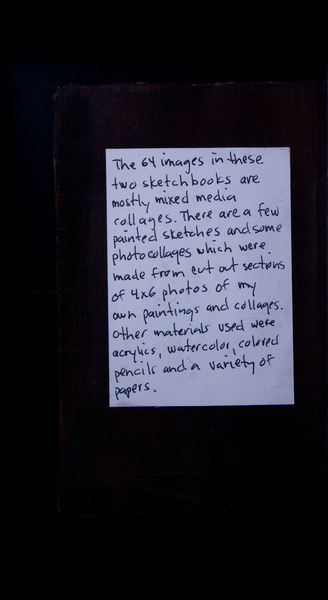 The 64 images in these
two sketchbooks are
mostly mixed media
collages. There are a few
painted sketches and some
photocollages which were
made from cut out sections
of 4x6 photos of my
own paintings and collages.
Other materials used were
acrylics, watercolor, colored
pencils and a variety of
papers.